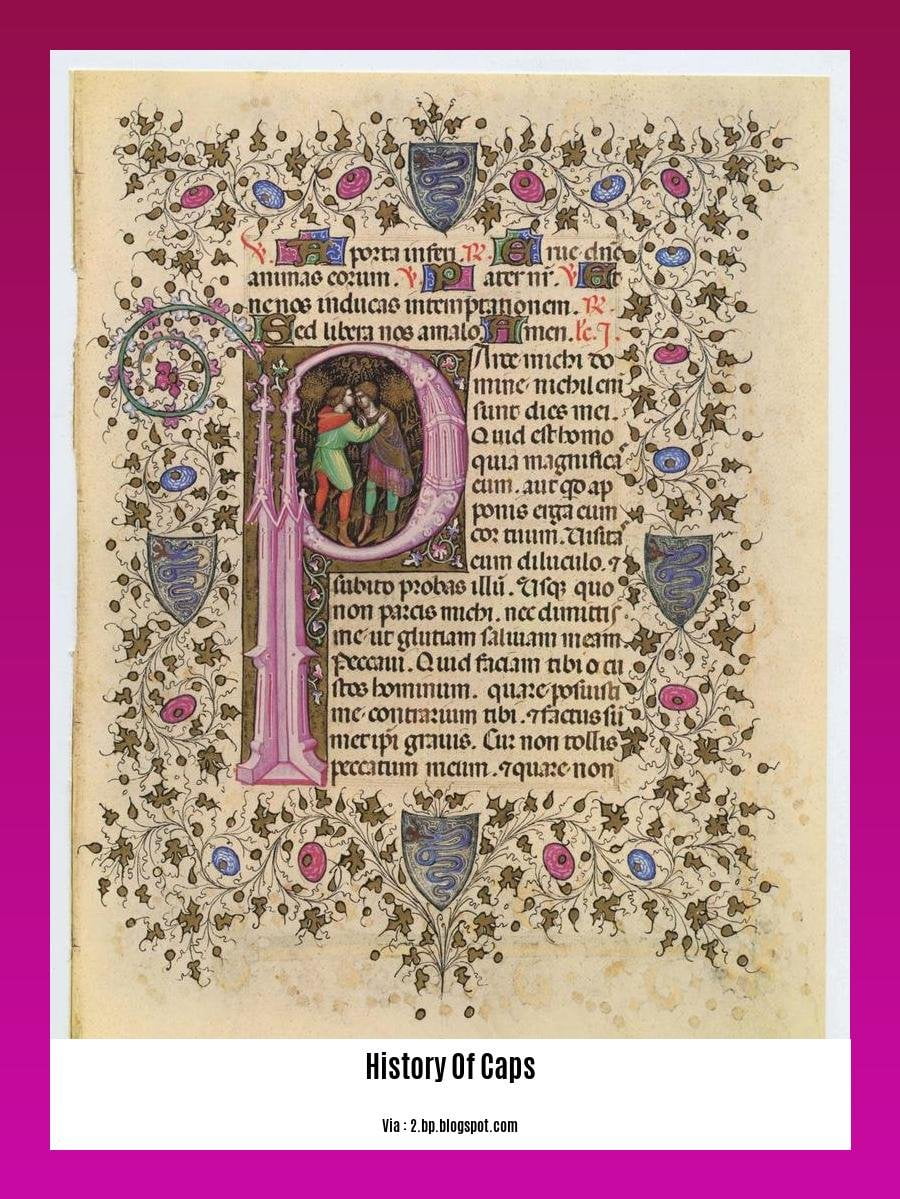 ℣. A porta inferi ℟. Erue dn̄e
animas eorum. ℣ Pater nr̄. ℣ Et
ne nos inducas intemptationem. ℟.
Sed libera nos amalo. Amen. lc. J.
PArce michi do
mine. nichil eni
sunt dies mei.
Quid est homo
quia magnificā
eum. aut qd ap
ponis erga eum
cor tuum. Uisitā
eum diluculo. ⁊
subito probas illū. Usq; quo
non parcis michi. nec dimittis
me ut glutiam saliuam meam
Peccaui. Quid faciam tibi o cu
stos hominum. quare posuisti
me contrarium tibi. ⁊ factus sū
metipi grauis. Cur non tollis
peccatum meum. ⁊ quare non
History Of Caps
Via : 2.bp.blogspot.com